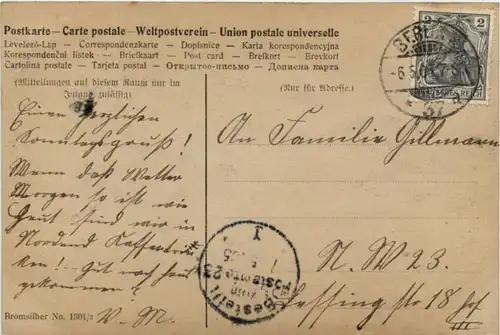 Postkarte — Carte postale — Weltpostverein — Union postale universelle
Levelező-Lap — Correspondenzkarte — Dopisnice — Karta korespondencyjna
Korespondenční listek — Brietkaart — Post card — Brefkort — Brevkort
Cartolina postale — Tarjeta postal — Открытое-письмо — Дописна карта
(Mitteilungen auf diesem Raum nur im
Inland zulässig)
(Nur für Adresse.)
Einen herzlichen
Sonntagsgruß!
Wenn das Wetter
Morgen so ist wie
Heut sind wir in
Nordend Kaffeetrin
ken! Gut nach haus
gekommen?
V. M.
Bromsilber No. 1501/2
2
2
DEUTSCHES REICH
BERLIN
-6.5.
* 37 a
An Familie Gillmann
N. W. 23.
Lessing str 18 Hof
III
Bestellt
vom
Postamte 23